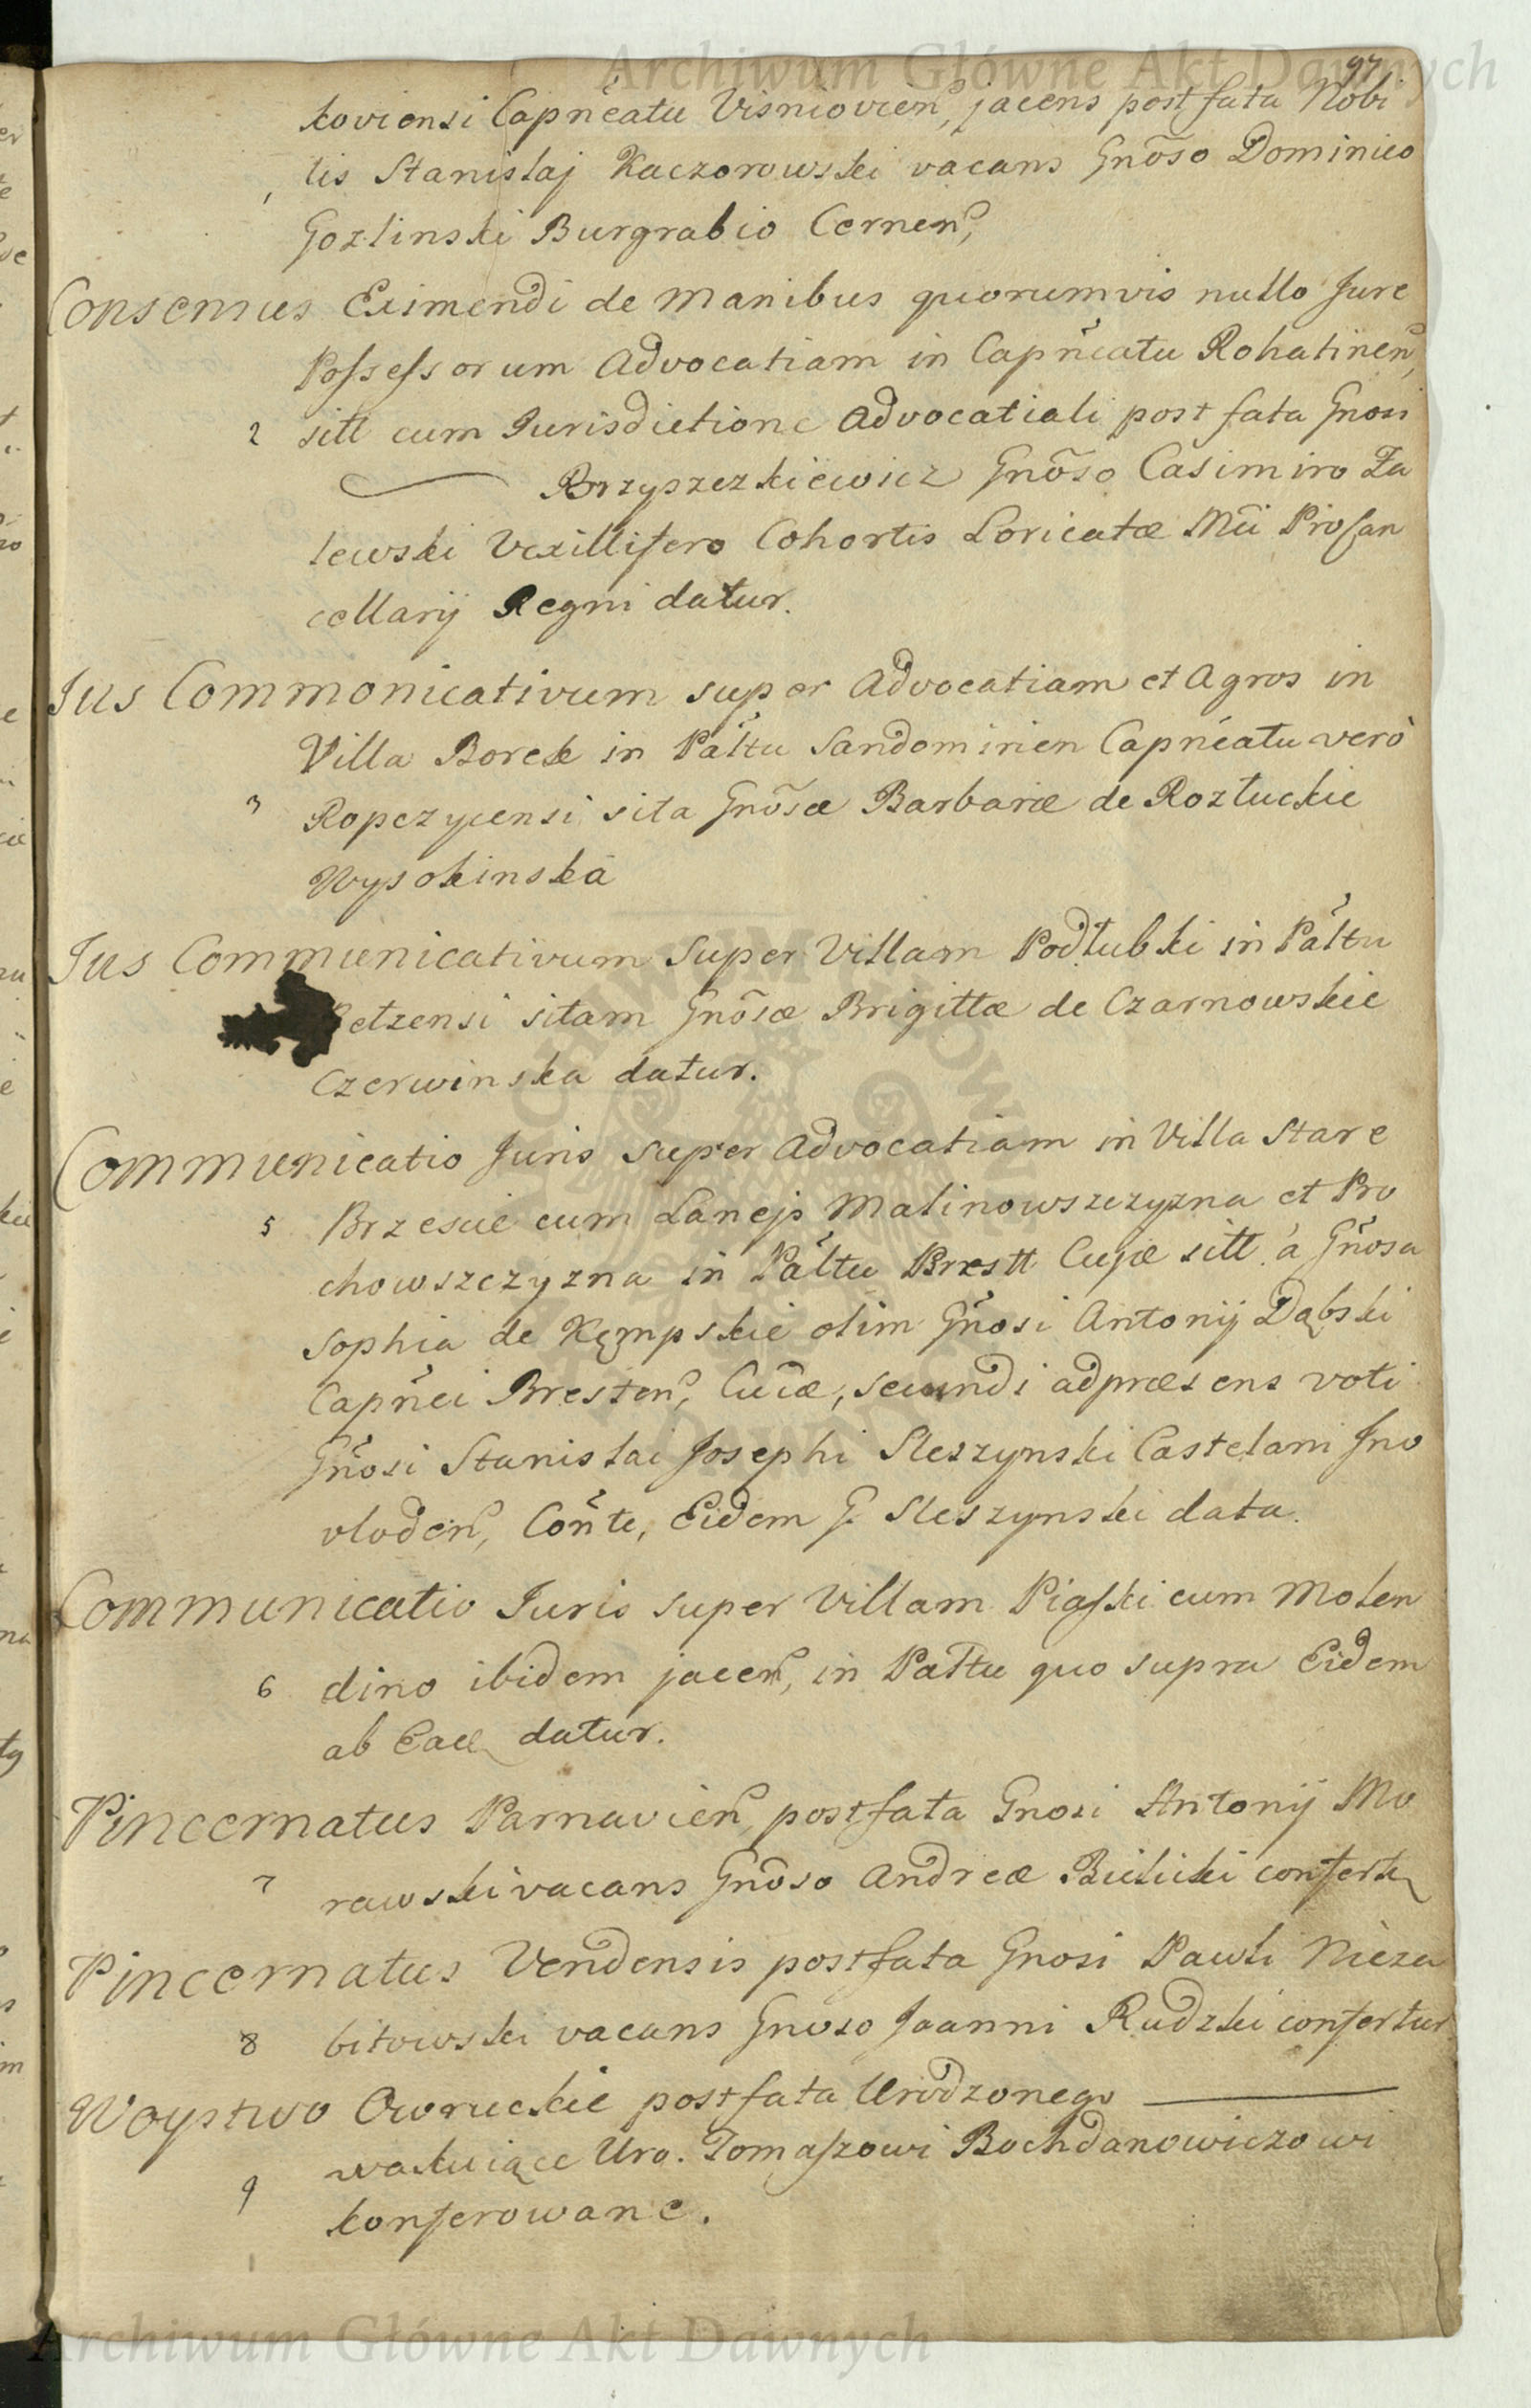 Archiwum Główne Akt Dawnych
97.
koviensi Capn̄eatu Visniovien, jacens post fata Nobi
1 lis Stanislaj Kaczorowski vacans Gnōso Dominico
Gozlinski Burgrabio Cernen,
Consensus Eximendi de manibus quorumvis nullo Jure
Possessorum Advocatiam in Capn̄eatu Rohatinen,
2 sitt cum Jurisdictione Advocatiali post fata Gnosi
Brzyszczkiewicz Gnōso Casimiro Za
lewski Vexillifero Cohortis Loricatæ Mci Procan
cellarij Regni datur.
Jus Commonicativum super Advocatiam et Agros in
Villa Borek in Pāltu Sandomirien Capnéatu verò
3 Ropczycensi sita Gnōsæ Barbaræ de Roztuckie
Wysokinska
Jus Communicativum super Villam Podłubki in Pāltu
etzensi sitam Gnōsæ Brigittæ de Czarnowskie
Czerwinska datur.
Communicatio Juris super Advocatiam in Villa Stare
5 Brzescie cum Lanejs Malinowszczyzna et Pro
chowszczyzna in Pāltu Brestt Cujæ sitt à Gn̄osa
Sophia de Kępskie olim Gn̄osi Antonij Dąbski
Capn̄ei Bresten, Cuiæ, secundi adpræsens voti
Gn̄osi Stanislai Josephi Sleszynski Castelani Jno
vloden, Con̄te, Eidem G. Sleszynski data.
Communicatio Juris super Villam Piaski cum Molen
6 dino ibidem jacen, in Pāltu quo supra Eidem
ab Ead datur.
Pincernatus Parnavien, post fata Gnosi Antonij Mo
7 rawski vacans Gnōso Andreæ Bielicki confert
Pincernatus Vendensis post fata Gnosi Pawli Nieza
8 bitowski vacans Gnoso Joanni Rudzki confertur
Woystwo Owruckie post fata Urodzonego
9 wakuiące Uro. Tomaszowi Bochdanowiczowi
konferowane.
Archiwum Główne Akt Dawnych